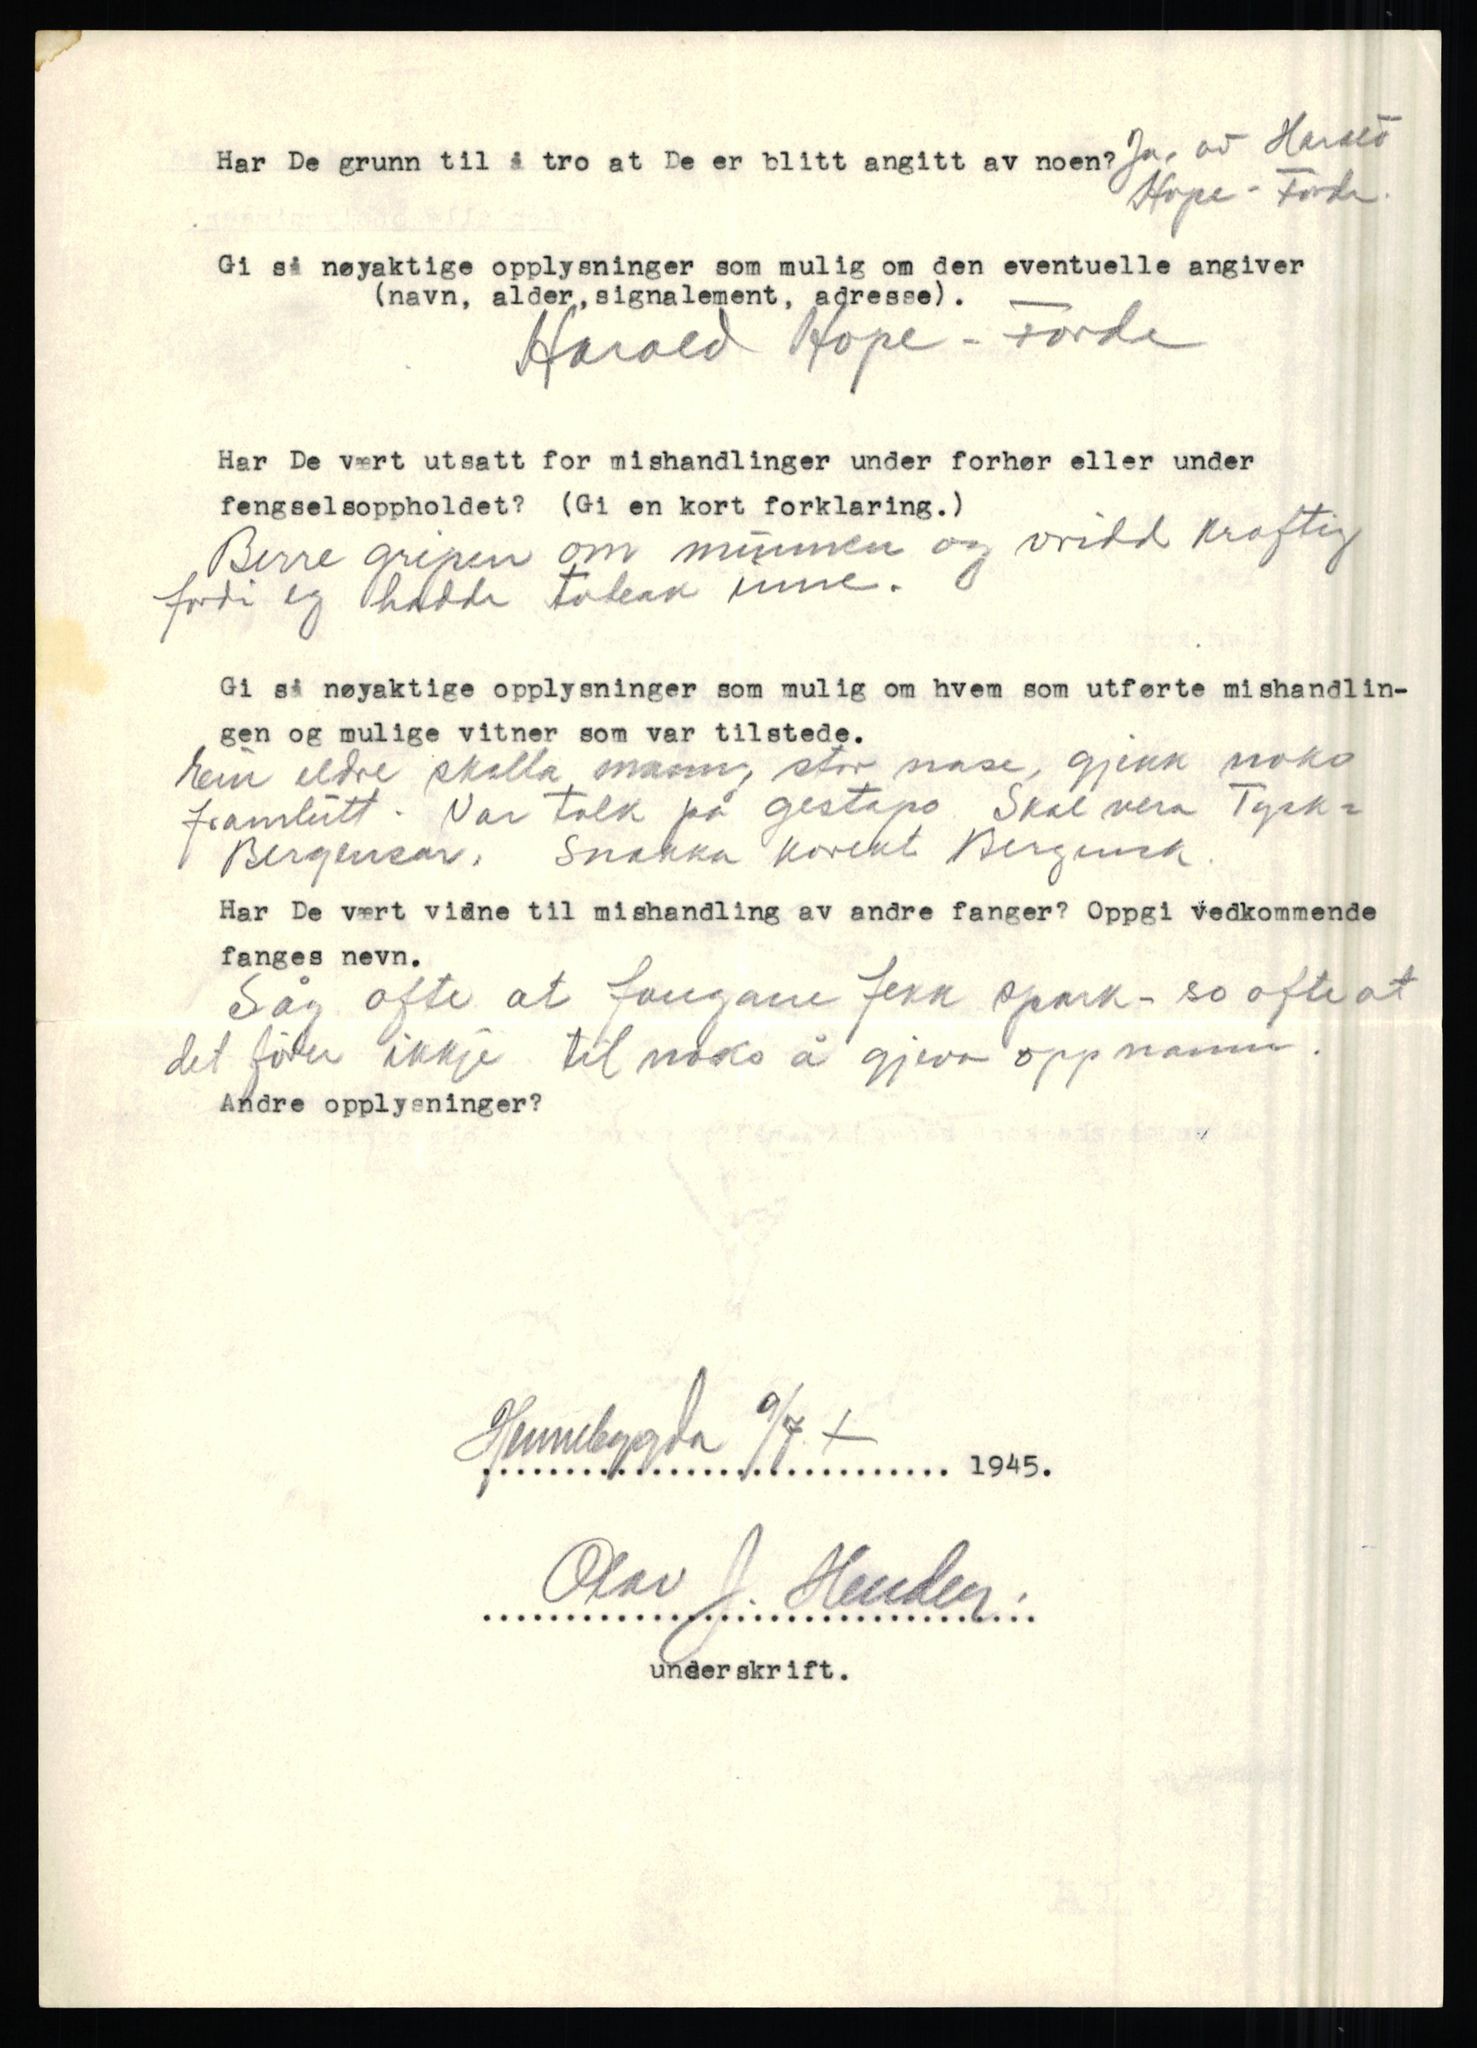 Har De grunn til å tro at De er blitt angitt av noen? Ja, av Harald
Hope - Førde.
Gi så nøyaktige opplysninger som mulig om den eventuelle angiver
(navn, alder, signalement, adresse).
Harald Hope - Førde
Har De vært utsatt for mishandlinger under forhør eller under
fengselsoppholdet? (Gi en kort forklaring.)
Berre gripen om munnen og vridd kraftig
fordi eg hadde tobakk inne.
Gi så nøyaktige opplysninger som mulig om hvem som utførte mishandlin-
gen og mulige vitner som var tilstede.
Ein eldre skalla mann, stor nase, gjekk noko
framlutt. Var tolk på gestapo Skal vera Tysk=
Bergensar. Snakka korekt Bergensk.
Har De vært vidne til mishandling av andre fanger? Oppgi vedkommende
fanges nevn.
Såg ofte at fangane fekk spark - so ofte at
det fører ikkje til noko å gjeva opp namn.
Andre opplysninger?
Hennebygda 9/7 1945.
Olav J. Henden.
underskrift.